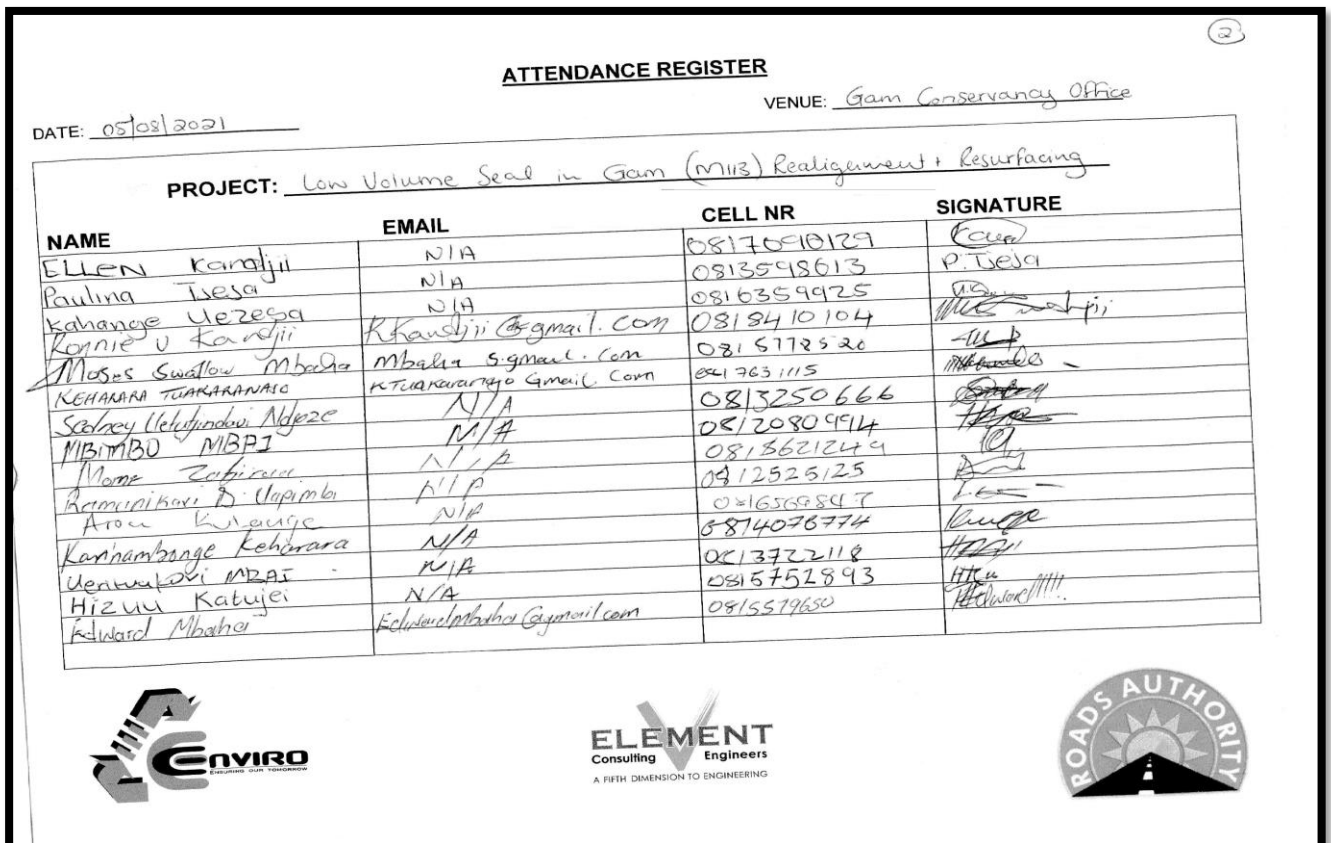 2
ATTENDANCE REGISTER
DATE: 05/08/2021 VENUE: Gam Conservancy Office
PROJECT: Low Volume Seal in Gam (M113) Realignment + Resurfacing
NAME EMAIL CELL NR SIGNATURE
ELLEN Kandjii N/A 0817090129
Paulina Tjeja N/A 0813598613 P.Tjeja
Kahange Uezesa N/A 0816359925
Ronnie U Kandjii RKandjii@gmail.com 0818410104
Moses Swallow Mbaha Mbaha s.gmail.com 0815778520
KEHARARA TUAKARANAJO KTuakaranajo Gmail.com 0817631115
Uetutjindovi Ndjoze N/A 0813250666
MBIMBO MBAI N/A 0812080994
N/A 0813621249
N/A 0812525125
N/A 0816569847
Karihambonge Keharara N/A 0814076774
MBAI N/A 0813722118
Hizuu Katujei N/A 0815751893
Edward Mbaha Edwardmbaha@gmail.com 0815579650 Edward!!!!
ENVIRO
ENSURING OUR TOMORROW
ELEMENT
Consulting Engineers
A FIFTH DIMENSION TO ENGINEERING
ROADS AUTHORITY